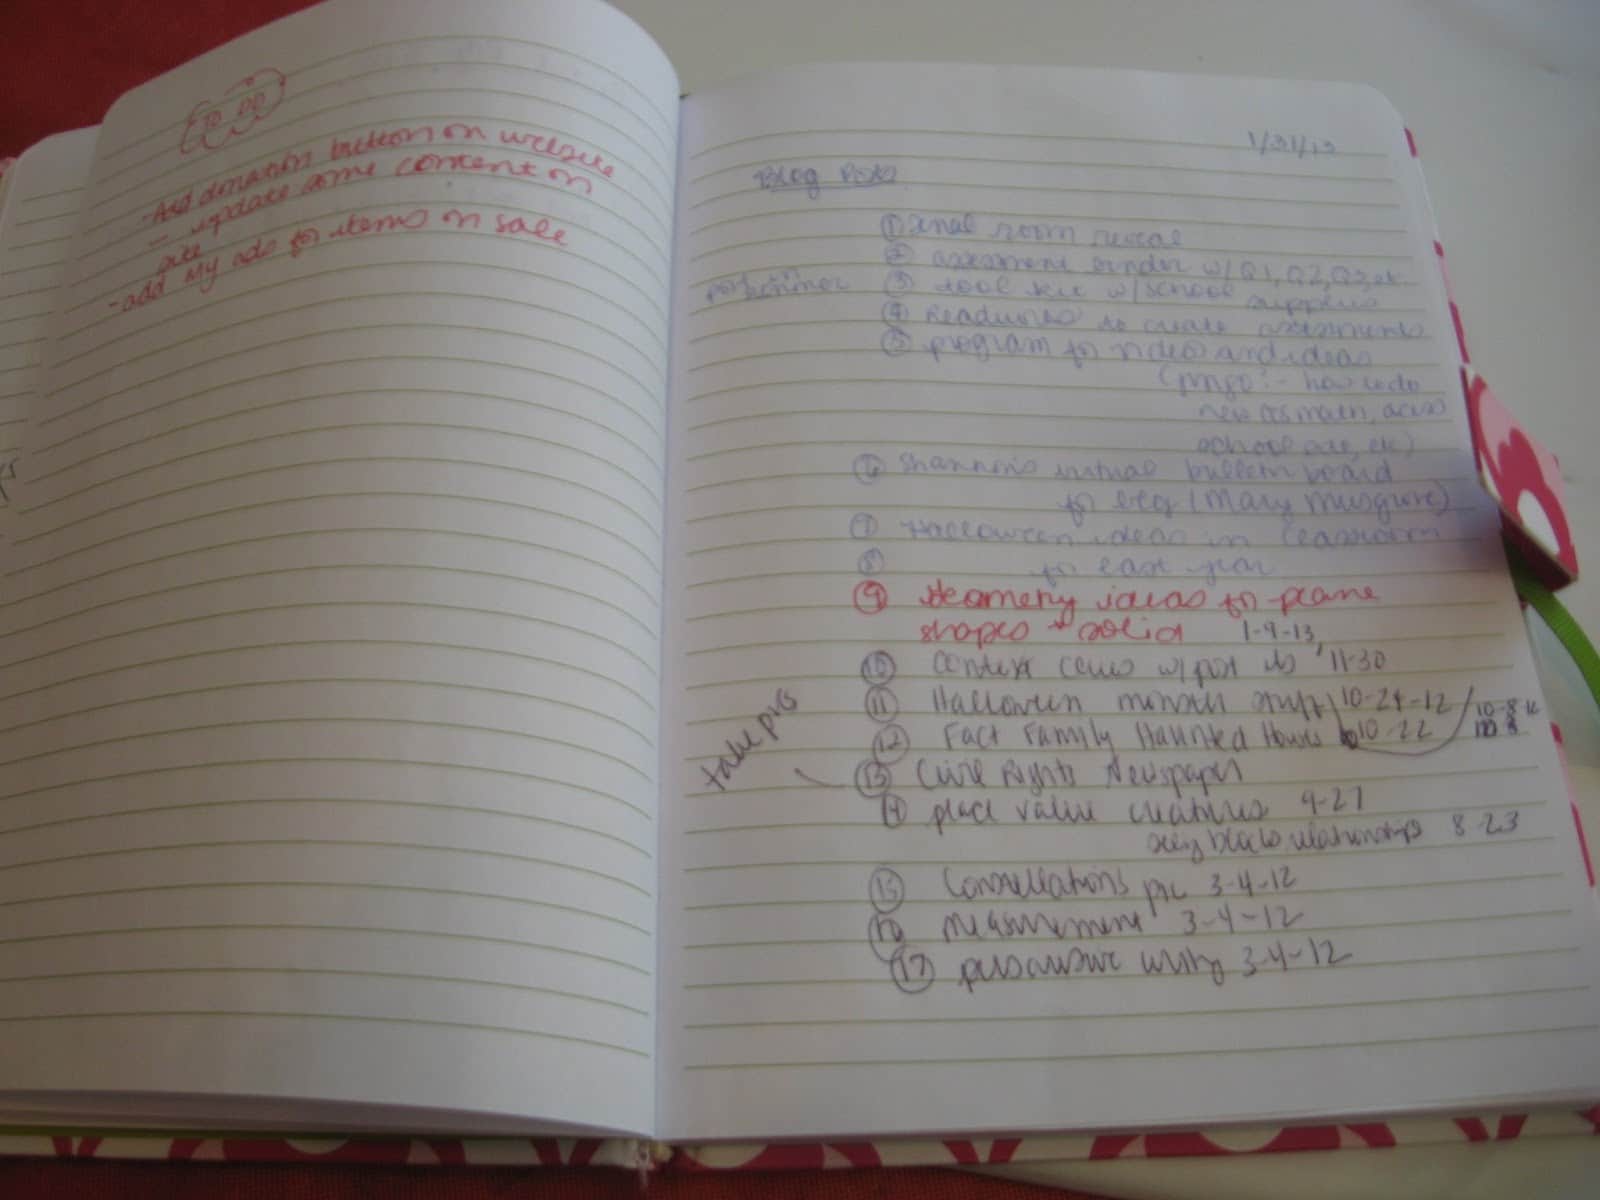 TO DO
- Add donation button on website
- update some content on
site
- add my ads for items on sale
1/31/13
Blog Posts
① final room reveal
② assessment binder w/ Q1, Q2, Q3, etc.
③ tool kit w/ school supplies
④ Readworks to create assessments
⑤ program for video and ideas
- how to do
new as math, across
school ade, etc)
⑥ Shannon's virtual bulletin board
for blog (Mary Musgrove)
⑦ Halloween ideas in classroom
⑧ for last year
⑨ Geometry ideas for plane
shapes + solid 1-9-13
⑩ Context clues w/ post its 11-30
⑪ Halloween monster 10-24-12 / 10-8-12
⑫ Fact Family Haunted House 10-22
take pics
⑬ Civil Rights Newspaper
⑭ place value creatures 9-27
relationships 8-23
⑮ Constellations pic 3-4-12
⑯ measurement 3-4-12
⑰ persuasive writing 3-4-12